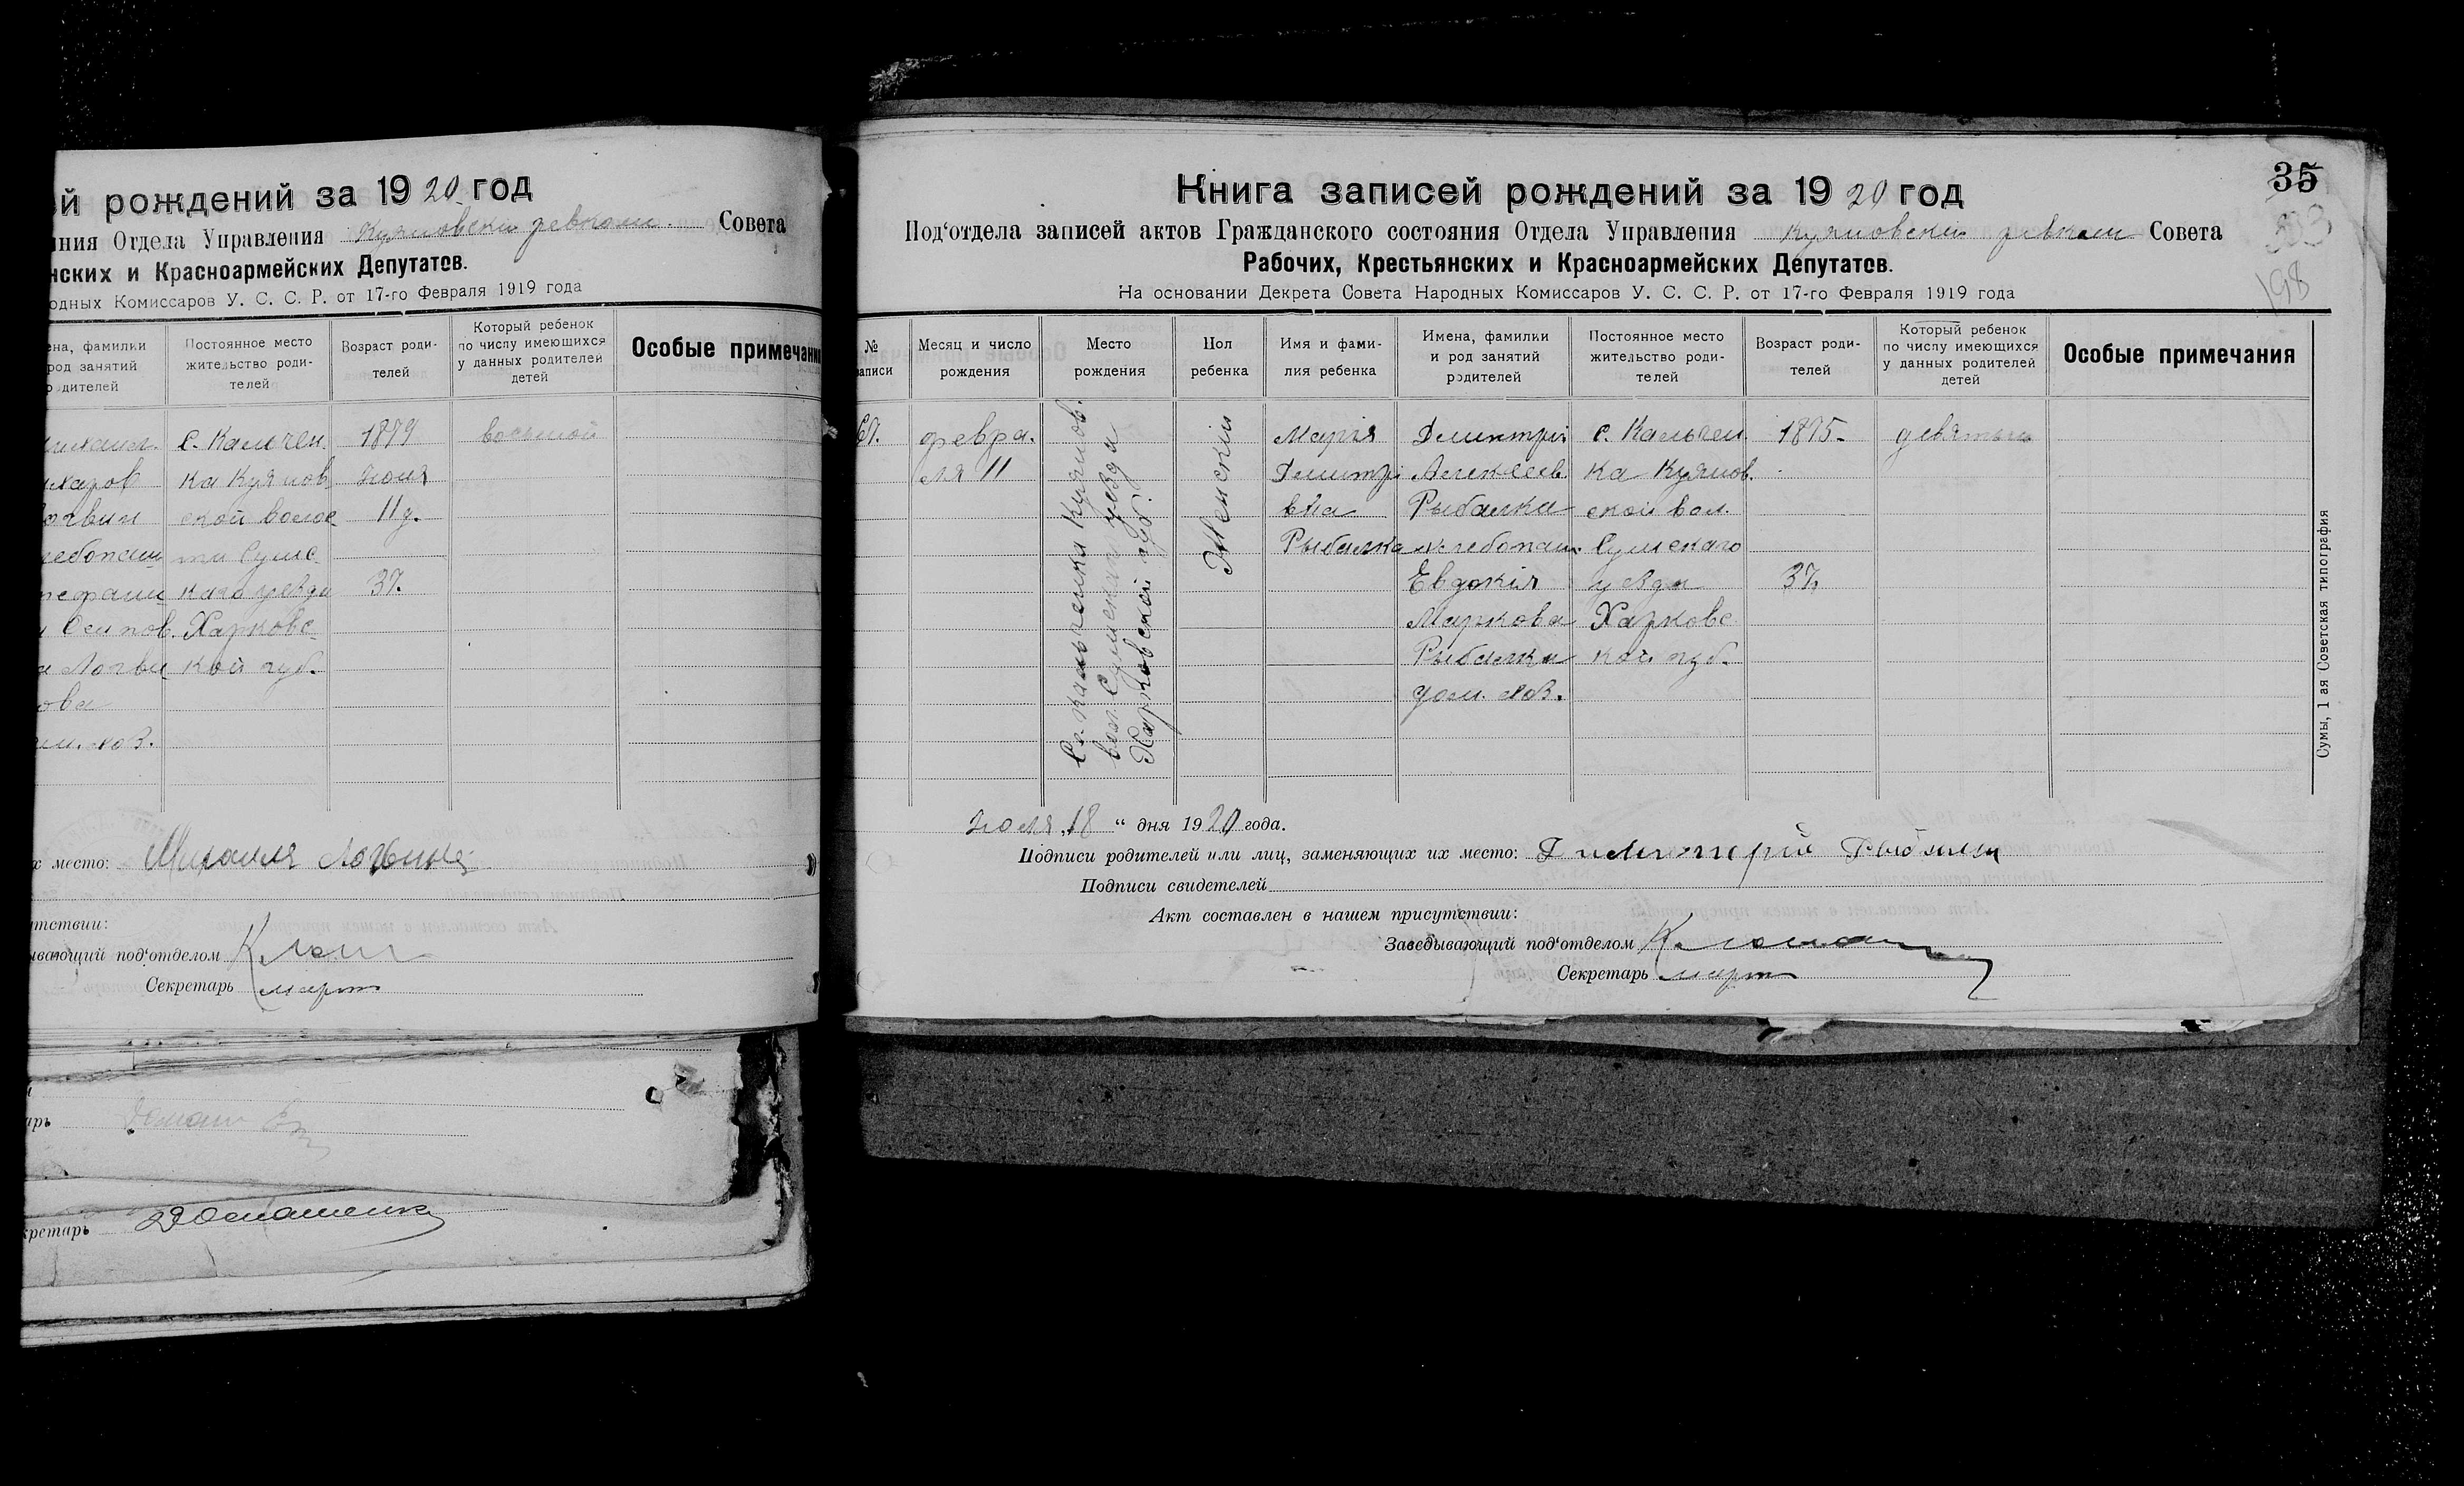 й рождений за 1920 год
ния Отдела Управления Куяновский ревком Совета
нских и Красноармейских Депутатов.
одных Комиссаров У. С. С. Р. от 17-го Февраля 1919 года
ена, фамилии
род занятий
одителей
Постоянное место
жительство роди-
телей
Возраст роди-
телей
Который ребенок
по числу имеющихся
у данных родителей
детей
Особые примечани
с. Кальчен
1879
восьмой
харов
ка Куянов
июня
ской волос
11 д.
ти Сумс
каго уезда
37.
Осипов.
Харковс
кой губ.
ова
ом. хоз.
х место: Михаиля
тствии:
ывающий под'отделом
Секретарь
арь
кретарь
Книга записей рождений за 1920 год
35
Под'отдела записей актов Гражданского состояния Отдела Управления Куяновский ревком Совета
Рабочих, Крестьянских и Красноармейских Депутатов.
198
На основании Декрета Совета Народных Комиссаров У. С. С. Р. от 17-го Февраля 1919 года
№
записи
Месяц и число
рождения
Место
рождения
Пол
ребенка
Имя и фами-
лия ребенка
Имена, фамилии
и род занятий
родителей
Постоянное место
жительство роди-
телей
Возраст роди-
телей
Который ребенок
по числу имеющихся
у данных родителей
детей
Особые примечания
67.
февра.
ля 11
Сл. Кальченка Куянов.
вол. Сумскаго уезда
Харковской губ.
Женский
Мария
Дмитрі
вна
Рыбалка
Дмитрій
Алексеев.
Рыбалка
хлебопаш.
Евдокія
Маркова
Рыбалка
дом. хоз.
с. Кальчен
ка Куянов.
ской вол.
Сумскаго
уезда
Харковс
кой губ.
1875.
37.
девятый
Июля „18“ дня 1920 года.
Подписи родителей или лиц, заменяющих их место: Дмитрий Рыбалка
Подписи свидетелей
Акт составлен в нашем присутствии:
Заведывающий под'отделом
Секретарь
Сумы, 1 ая Советская типография